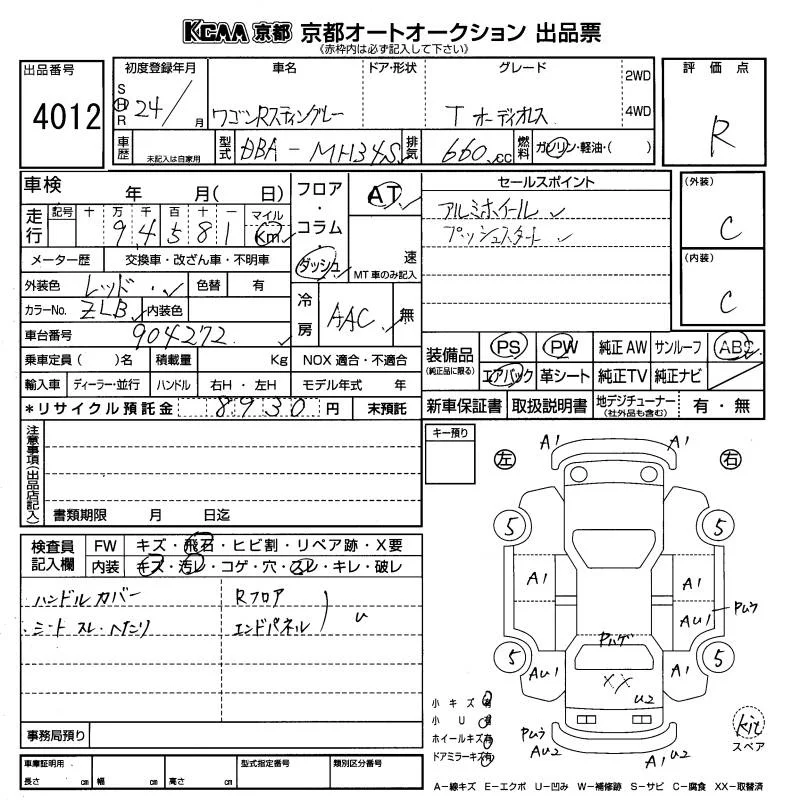 KCAA 京都 京都オートオークション 出品票
(赤枠内は必ず記入して下さい)
出品番号 4012
初度登録年月 S H R 24/ 月
車名 ワゴンRスティングレー
ドア・形状
グレード T オーディオレス
2WD 4WD
評価点 R
車歴 未記入は自家用
型式 DBA-MH34S
排気 660 cc
燃料 ガソリン・軽油・( )
車検 年 月( 日)
走行 記号 十 万 千 百 十 一 マイル Km
9 4 5 8 1
メーター歴 交換車・改ざん車・不明車
外装色 レッド 色替 有
カラーNo. ZLB 内装色
車台番号 904272
乗車定員( )名 積載量 Kg NOX 適合・不適合
輸入車 ディーラー・並行 ハンドル 右H・左H モデル年式 年
*リサイクル預託金 8930 円 未預託
フロア・コラム・ダッシュ
AT
速
MT車のみ記入
冷房 AAC 無
セールスポイント
アルミホイール
プッシュスタート
(外装) C
(内装) C
装備品 (純正品に限る)
PS PW 純正AW サンルーフ ABS
エアバック 革シート 純正TV 純正ナビ
新車保証書 取扱説明書 地デジチューナー (社外品も含む) 有・無
注意事項(出品店記入)
書類期限 月 日迄
キー預り
左 右
A1 A1
5 5
A1 A1
AU1 Pムラ
Pハゲ
5 AU1 A1 5
XX
U2
Pムラ
AU2
A1 U2
kit
スペア
小キズ 有
小U 有
ホイールキズ 有
ドアミラーキズ 有
検査員記入欄
FW キズ・飛石・ヒビ割・リペア跡・X要
内装 キズ・汚レ・コゲ・穴・スレ・キレ・破レ
ハンドルカバー
シート スレ・ヘタリ
Rフロア
エンドパネル
U
事務局預り
車庫証明用 長さ cm 幅 cm 高さ cm
型式指定番号
類別区分番号
A-線キズ E-エクボ U-凹み W-補修跡 S-サビ C-腐食 XX-取替済